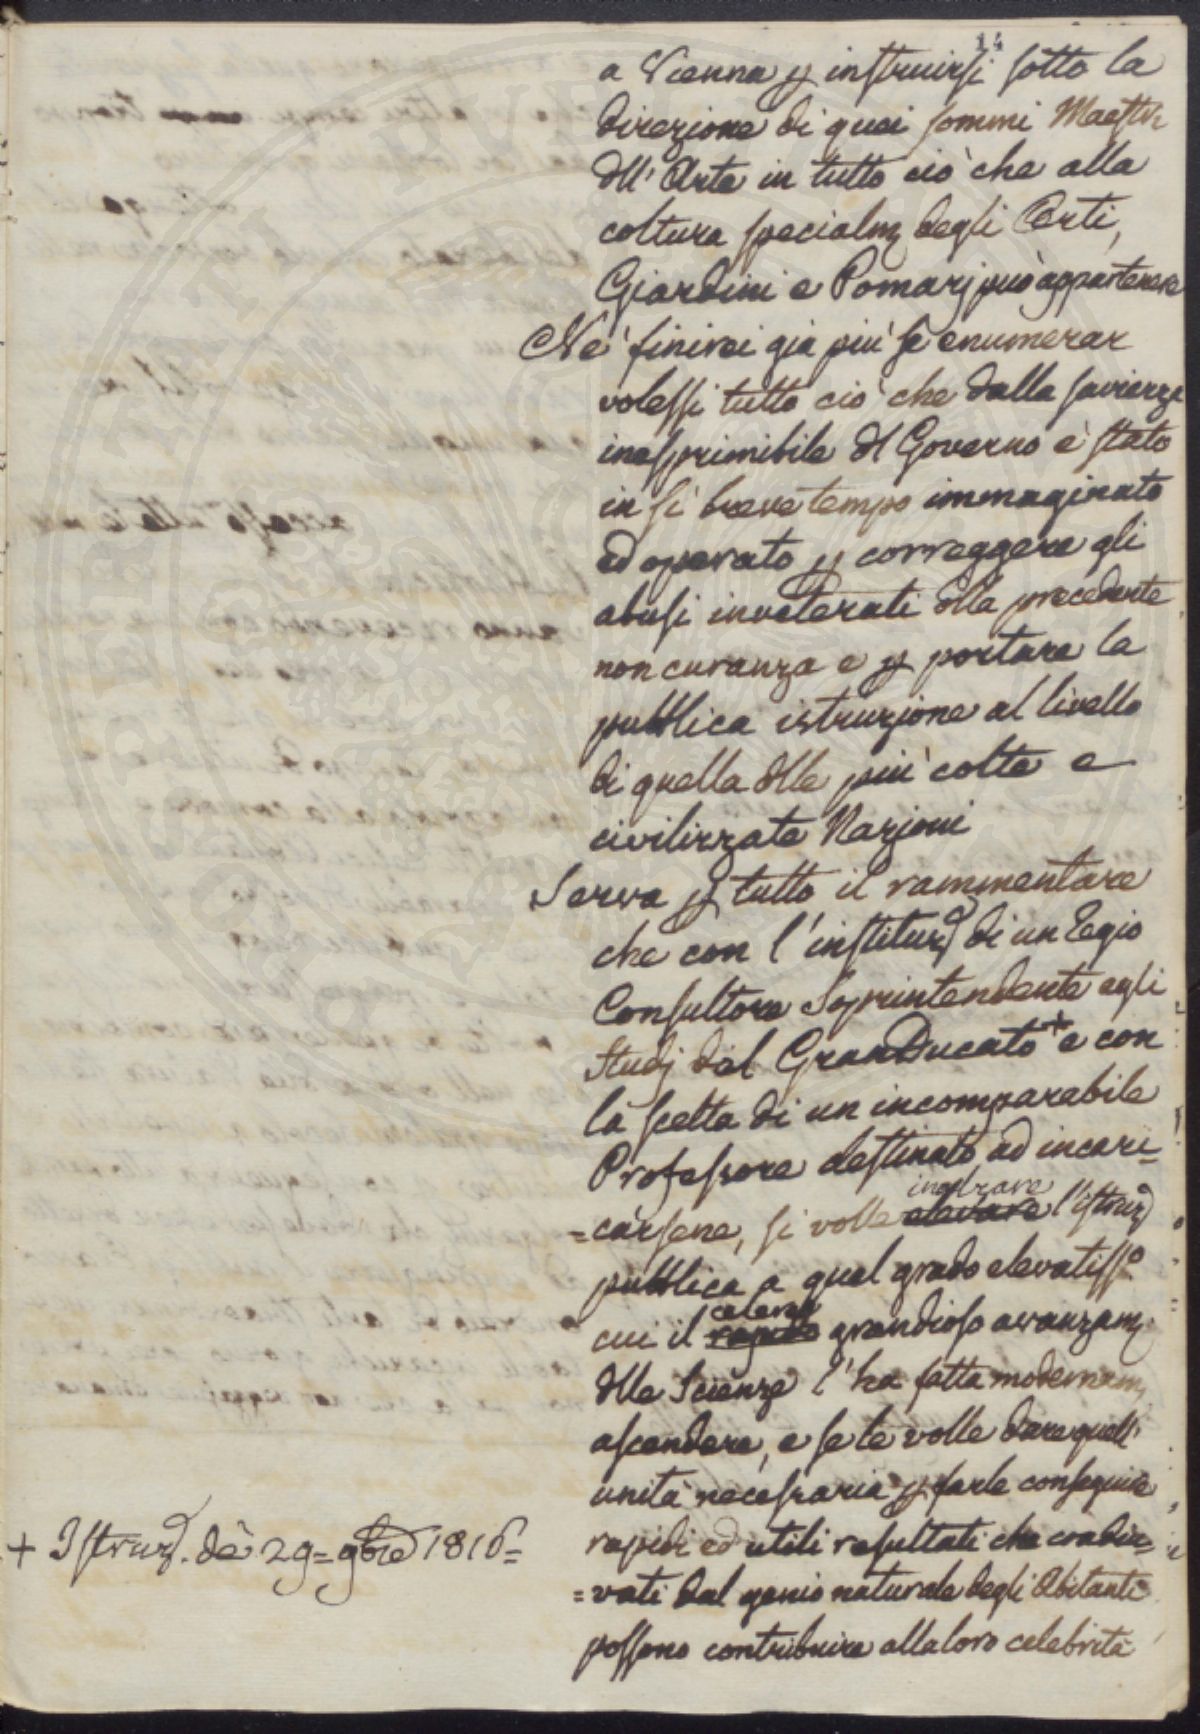 14
a Vienna p instruirsi sotto la
direzione di quei sommi Maestri
dll'Arte in tutto ciò che alla
coltura specialm degli Orti,
Giardini e Pomarj può appartenere
Nè finirei già più se enumerar
volessi tutto ciò che dalla saviezza
inesprimibile dl Governo è stato
in sì breve tempo immaginato
ed operato p correggere gli
abusi inveterati dlla precedente
non curanza e p portare la
pubblica istruzione al livello
di quella dlle più colte e
civilizzate Nazioni
Serva p tutto il rammentare
che con l'instituz di un Regio
Consultore Soprintendente agli
Studj del GranDucato + e con
la scelta di un incomparabile
Professore destinato ad incari=
=carsene, si volle elevare l'istruz
inalzare
pubblica a quel grado elevatisso
cui il rapido grandioso avanzam
celere
dlle Scienze l'ha fatta modernam
ascendere, e se le volle dare quell'
unità necessaria p farle conseguire
rapidi ed utili resultati che coadiu=
=vati dal genio naturale degli Abitanti
possono contribuire alla loro celebrità
+ Istruz. de 29= 9bre 1816=